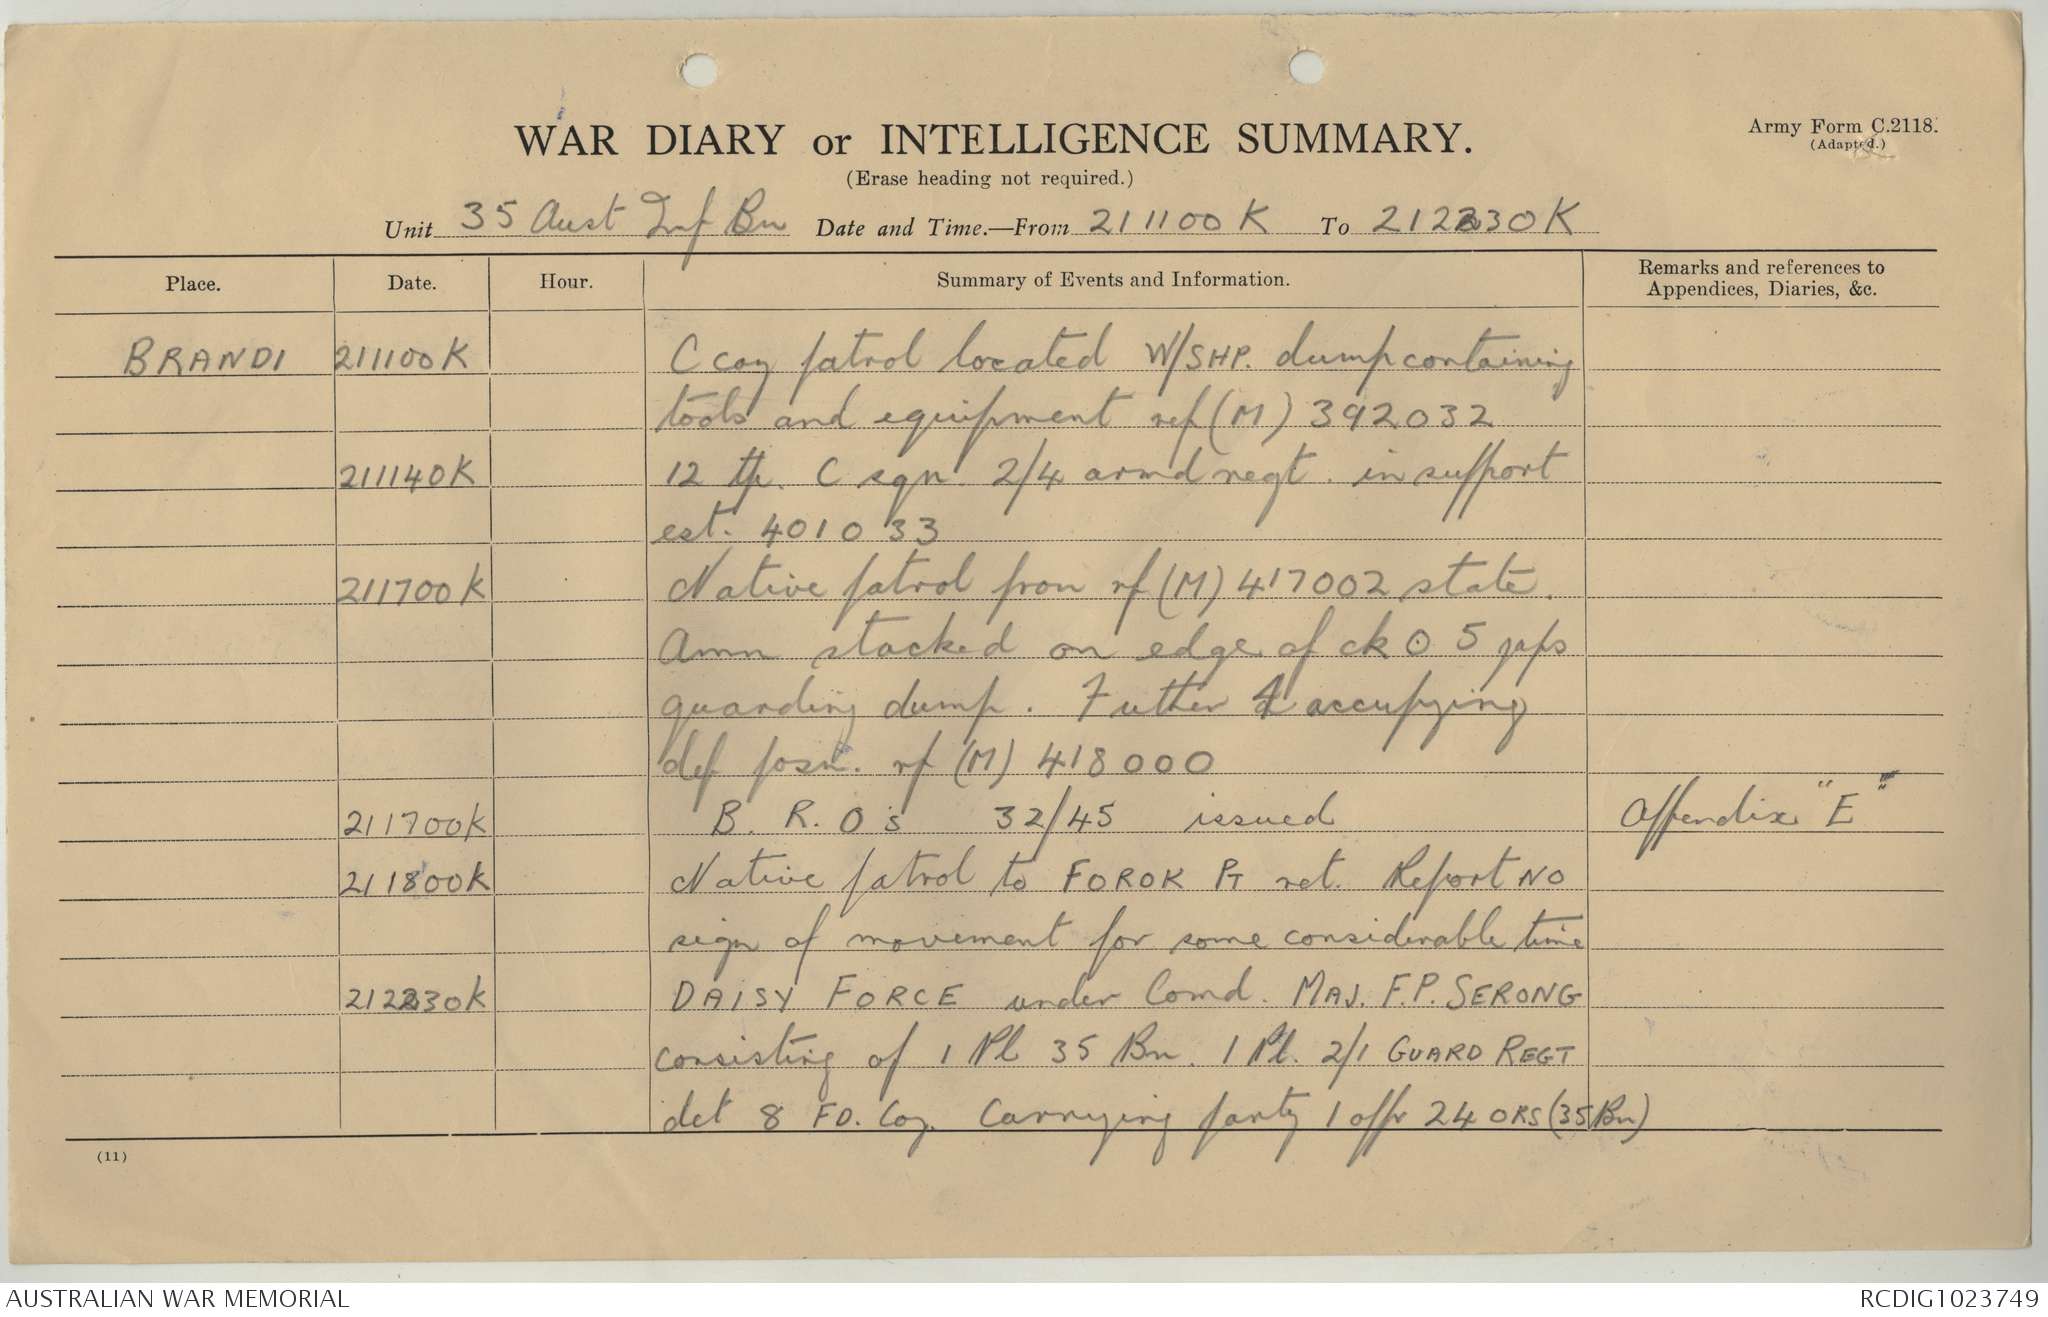 WAR DIARY or INTELLIGENCE SUMMARY.
Army Form C.2118.
(Adapted.)
(Erase heading not required.)
Unit 35 Aust Inf Bn Date and Time.—From 211100K To 212230K
Place. Date. Hour. Summary of Events and Information. Remarks and references to Appendices, Diaries, &c.
BRANDI 211100K C coy patrol located W/SHP. dump containing
tools and equipment ref (M) 392032
211140K 12 tp. C sqn. 2/4 armd regt. in support
est. 401033
211700K Native patrol from rf (M) 417002 state.
Amn stacked on edge of ck 5 japs
guarding dump. Futher 4 accupying
def posn. rf (M) 418000
211700K B. R. O's 32/45 issued Appendix "E"
211800K Native patrol to FOROK PT ret. Report NO
sign of movement for some considerable time
212230K DAISY FORCE under Comd. MAJ. F.P. SERONG
consisting of 1 Pl 35 Bn. 1 Pl. 2/1 GUARD REGT
det 8 FD. Coy. Carrying party 1 offr 24 ORS (35 Bn)
(11)
AUSTRALIAN WAR MEMORIAL RCDIG1023749